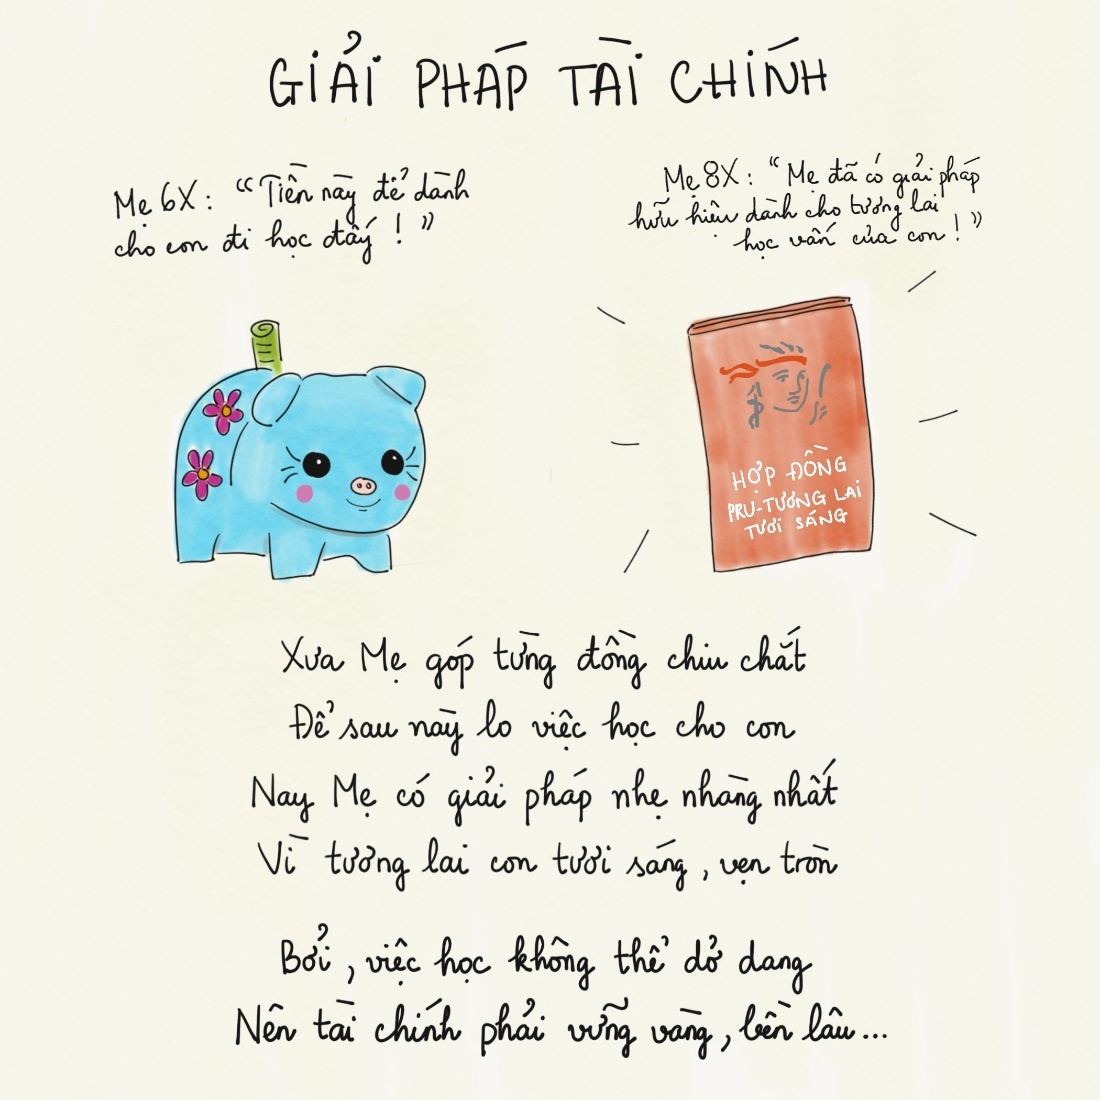 GIẢI PHÁP TÀI CHÍNH
Mẹ 6X: "Tiền này để dành
cho con đi học đấy!"
Mẹ 8X: "Mẹ đã có giải pháp
hữu hiệu dành cho tương lai
học vấn của con!"
HỢP ĐỒNG
PRU-TƯƠNG LAI
TƯƠI SÁNG
Xưa Mẹ góp từng đồng chiu chắt
Để sau này lo việc học cho con
Nay Mẹ có giải pháp nhẹ nhàng nhất
Vì tương lai con tươi sáng, vẹn tròn
Bởi, việc học không thể dở dang
Nên tài chính phải vững vàng, bền lâu...